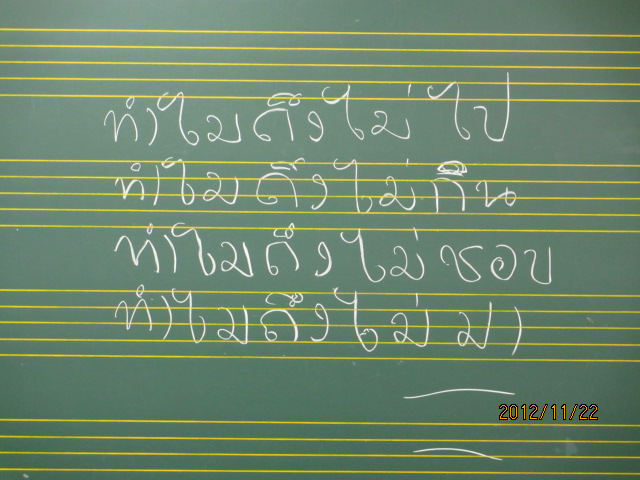 ทำไมถึงไม่ไป
ทำไมถึงไม่กิน
ทำไมถึงไม่ชอบ
ทำไมถึงไม่มา
2012/11/22